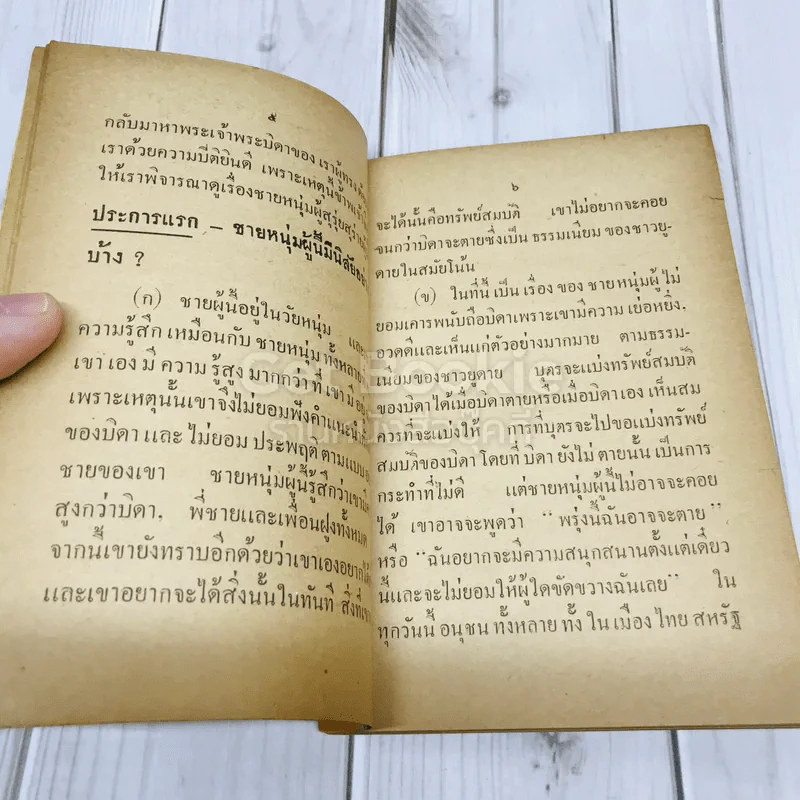 ๕
กลับมาหาพระเจ้าพระบิดาของ เราผู้ทรง
เราด้วยความปีติยินดี เพราะเหตุนี้ข้าพเจ้า
ให้เราพิจารณาดูเรื่องชายหนุ่มผู้สุรุ่ยสุร่าย
ประการแรก – ชายหนุ่มผู้นี้มีนิสัย
บ้าง ?
(ก) ชายผู้นี้อยู่ในวัยหนุ่ม และ
ความรู้สึก เหมือนกับ ชายหนุ่ม ทั้งหลาย
เขา เอง มี ความ รู้สูง มากกว่า ที่ เขา มี อยู่
เพราะเหตุนั้นเขาจึงไม่ยอมฟังคำแนะนำ
ของบิดา และ ไม่ยอม ประพฤติ ตามแบบ
ชายของเขา ชายหนุ่มผู้นี้รู้สึกว่าเขา
สูงกว่าบิดา, พี่ชายและเพื่อนฝูงทั้งหมด
จากนี้เขายังทราบอีกด้วยว่าเขาเองอยากได้
และเขาอยากจะได้สิ่งนั้นในทันที สิ่งที่เขา
๖
จะได้นั้นคือทรัพย์สมบัติ เขาไม่อยากจะคอย
จนกว่าบิดาจะตายซึ่งเป็น ธรรมเนียม ของชาวยู-
ดายในสมัยโน้น
(ข) ในที่นี้ เป็น เรื่อง ของ ชาย หนุ่ม ผู้ ไม่
ยอมเคารพนับถือบิดาเพราะเขามีความ เย่อหยิ่ง,
อวดดีและเห็นแก่ตัวอย่างมากมาย ตามธรรม-
เนียมของชาวยูดาย บุตรจะแบ่งทรัพย์สมบัติ
ของบิดาได้เมื่อบิดาตายหรือเมื่อบิดา เอง เห็นสม
ควรที่จะแบ่งให้ การที่บุตรจะไปขอแบ่งทรัพย์
สมบัติของบิดา โดยที่ บิดา ยังไม่ ตายนั้น เป็นการ
กระทำที่ไม่ดี แต่ชายหนุ่มผู้นี้ไม่อาจจะคอย
ได้ เขาอาจจะพูดว่า “ พรุ่งนี้ฉันอาจจะตาย ”
หรือ “ ฉันอยากจะมีความสนุกสนานตั้งแต่เดี๋ยว
นี้และจะไม่ยอมให้ผู้ใดขัดขวางฉันเลย ” ใน
ทุกวันนี้ อนุชน ทั้งหลาย ทั้ง ใน เมือง ไทย สหรัฐ